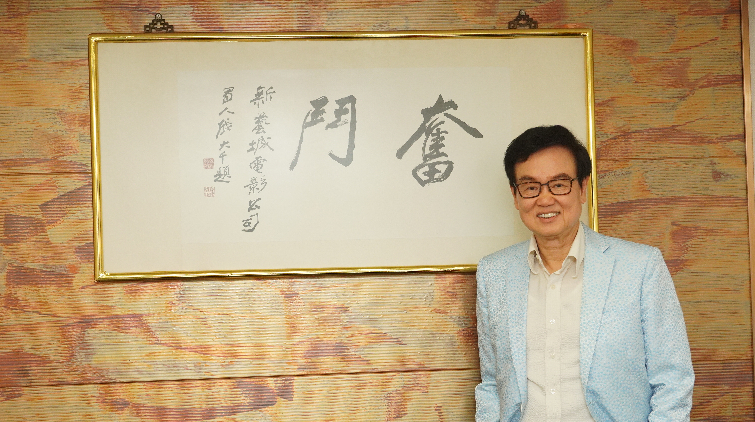 奮鬥
新藝城電影公司
蜀人張大千題